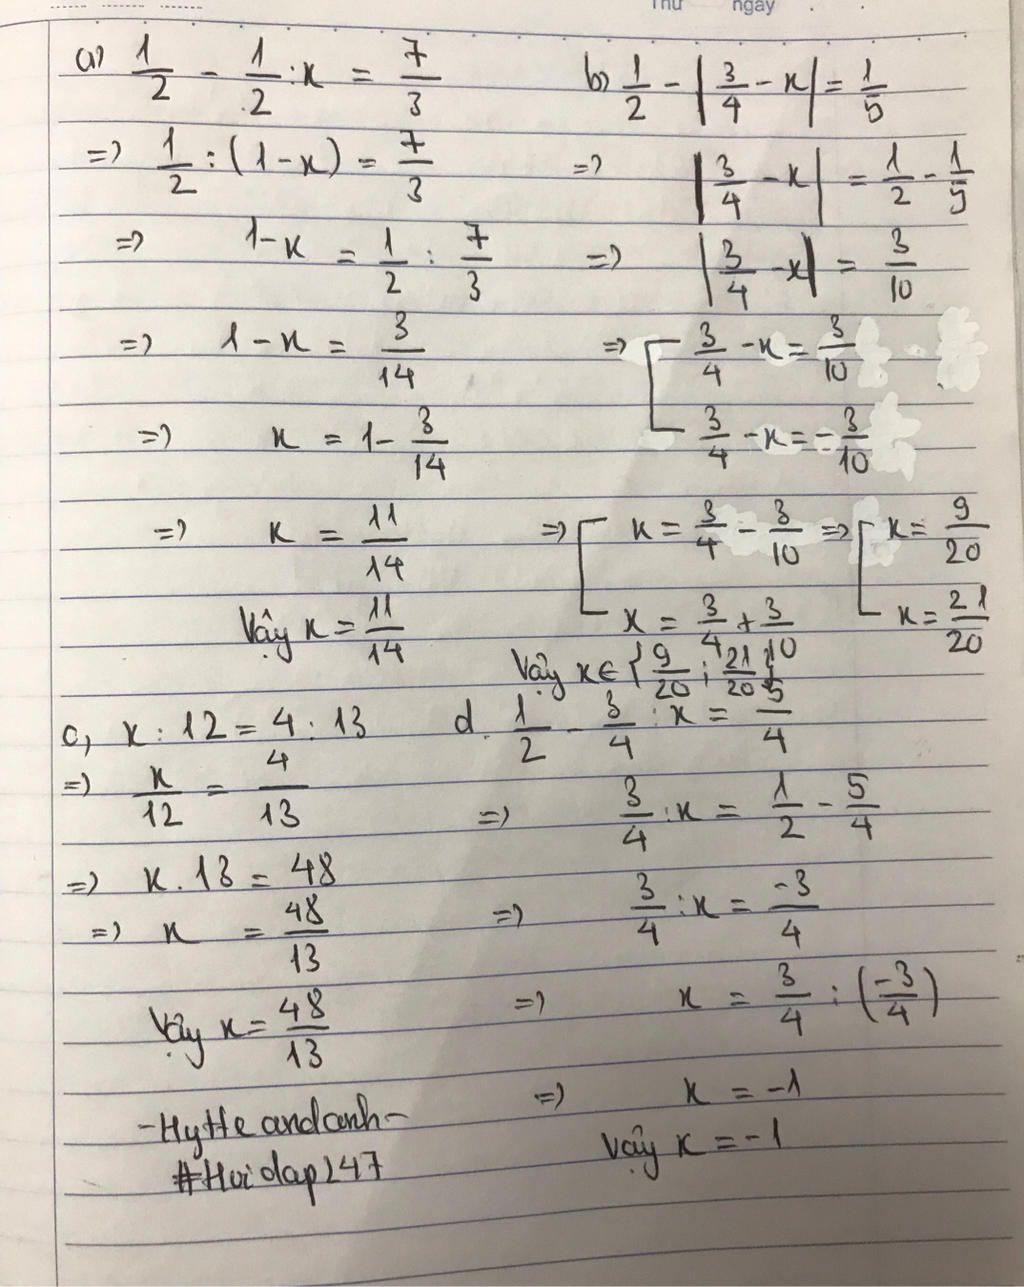 Thứ ngày
a) 1/2 - 1/2 : x = 7/3
=> 1/2 : (1 - x) = 7/3
=> 1 - x = 1/2 : 7/3
=> 1 - x = 3/14
=> x = 1 - 3/14
=> x = 11/14
Vậy x = 11/14
b) 1/2 - |3/4 - x| = 1/5
=> |3/4 - x| = 1/2 - 1/5
=> |3/4 - x| = 3/10
=> [ 3/4 - x = 3/10
3/4 - x = -3/10
=> [ x = 3/4 - 3/10 => [ x = 9/20
x = 3/4 + 3/10 x = 21/20
Vậy x ∈ {9/20 ; 21/20}
c, x : 12 = 4 : 13
=> x/12 = 4/13
=> x . 13 = 48
=> x = 48/13
Vậy x = 48/13
d. 1/2 - 3/4 : x = 5/4
=> 3/4 : x = 1/2 - 5/4
=> 3/4 : x = -3/4
=> x = 3/4 : (-3/4)
=> x = -1
Vậy x = -1
#Hoidap247